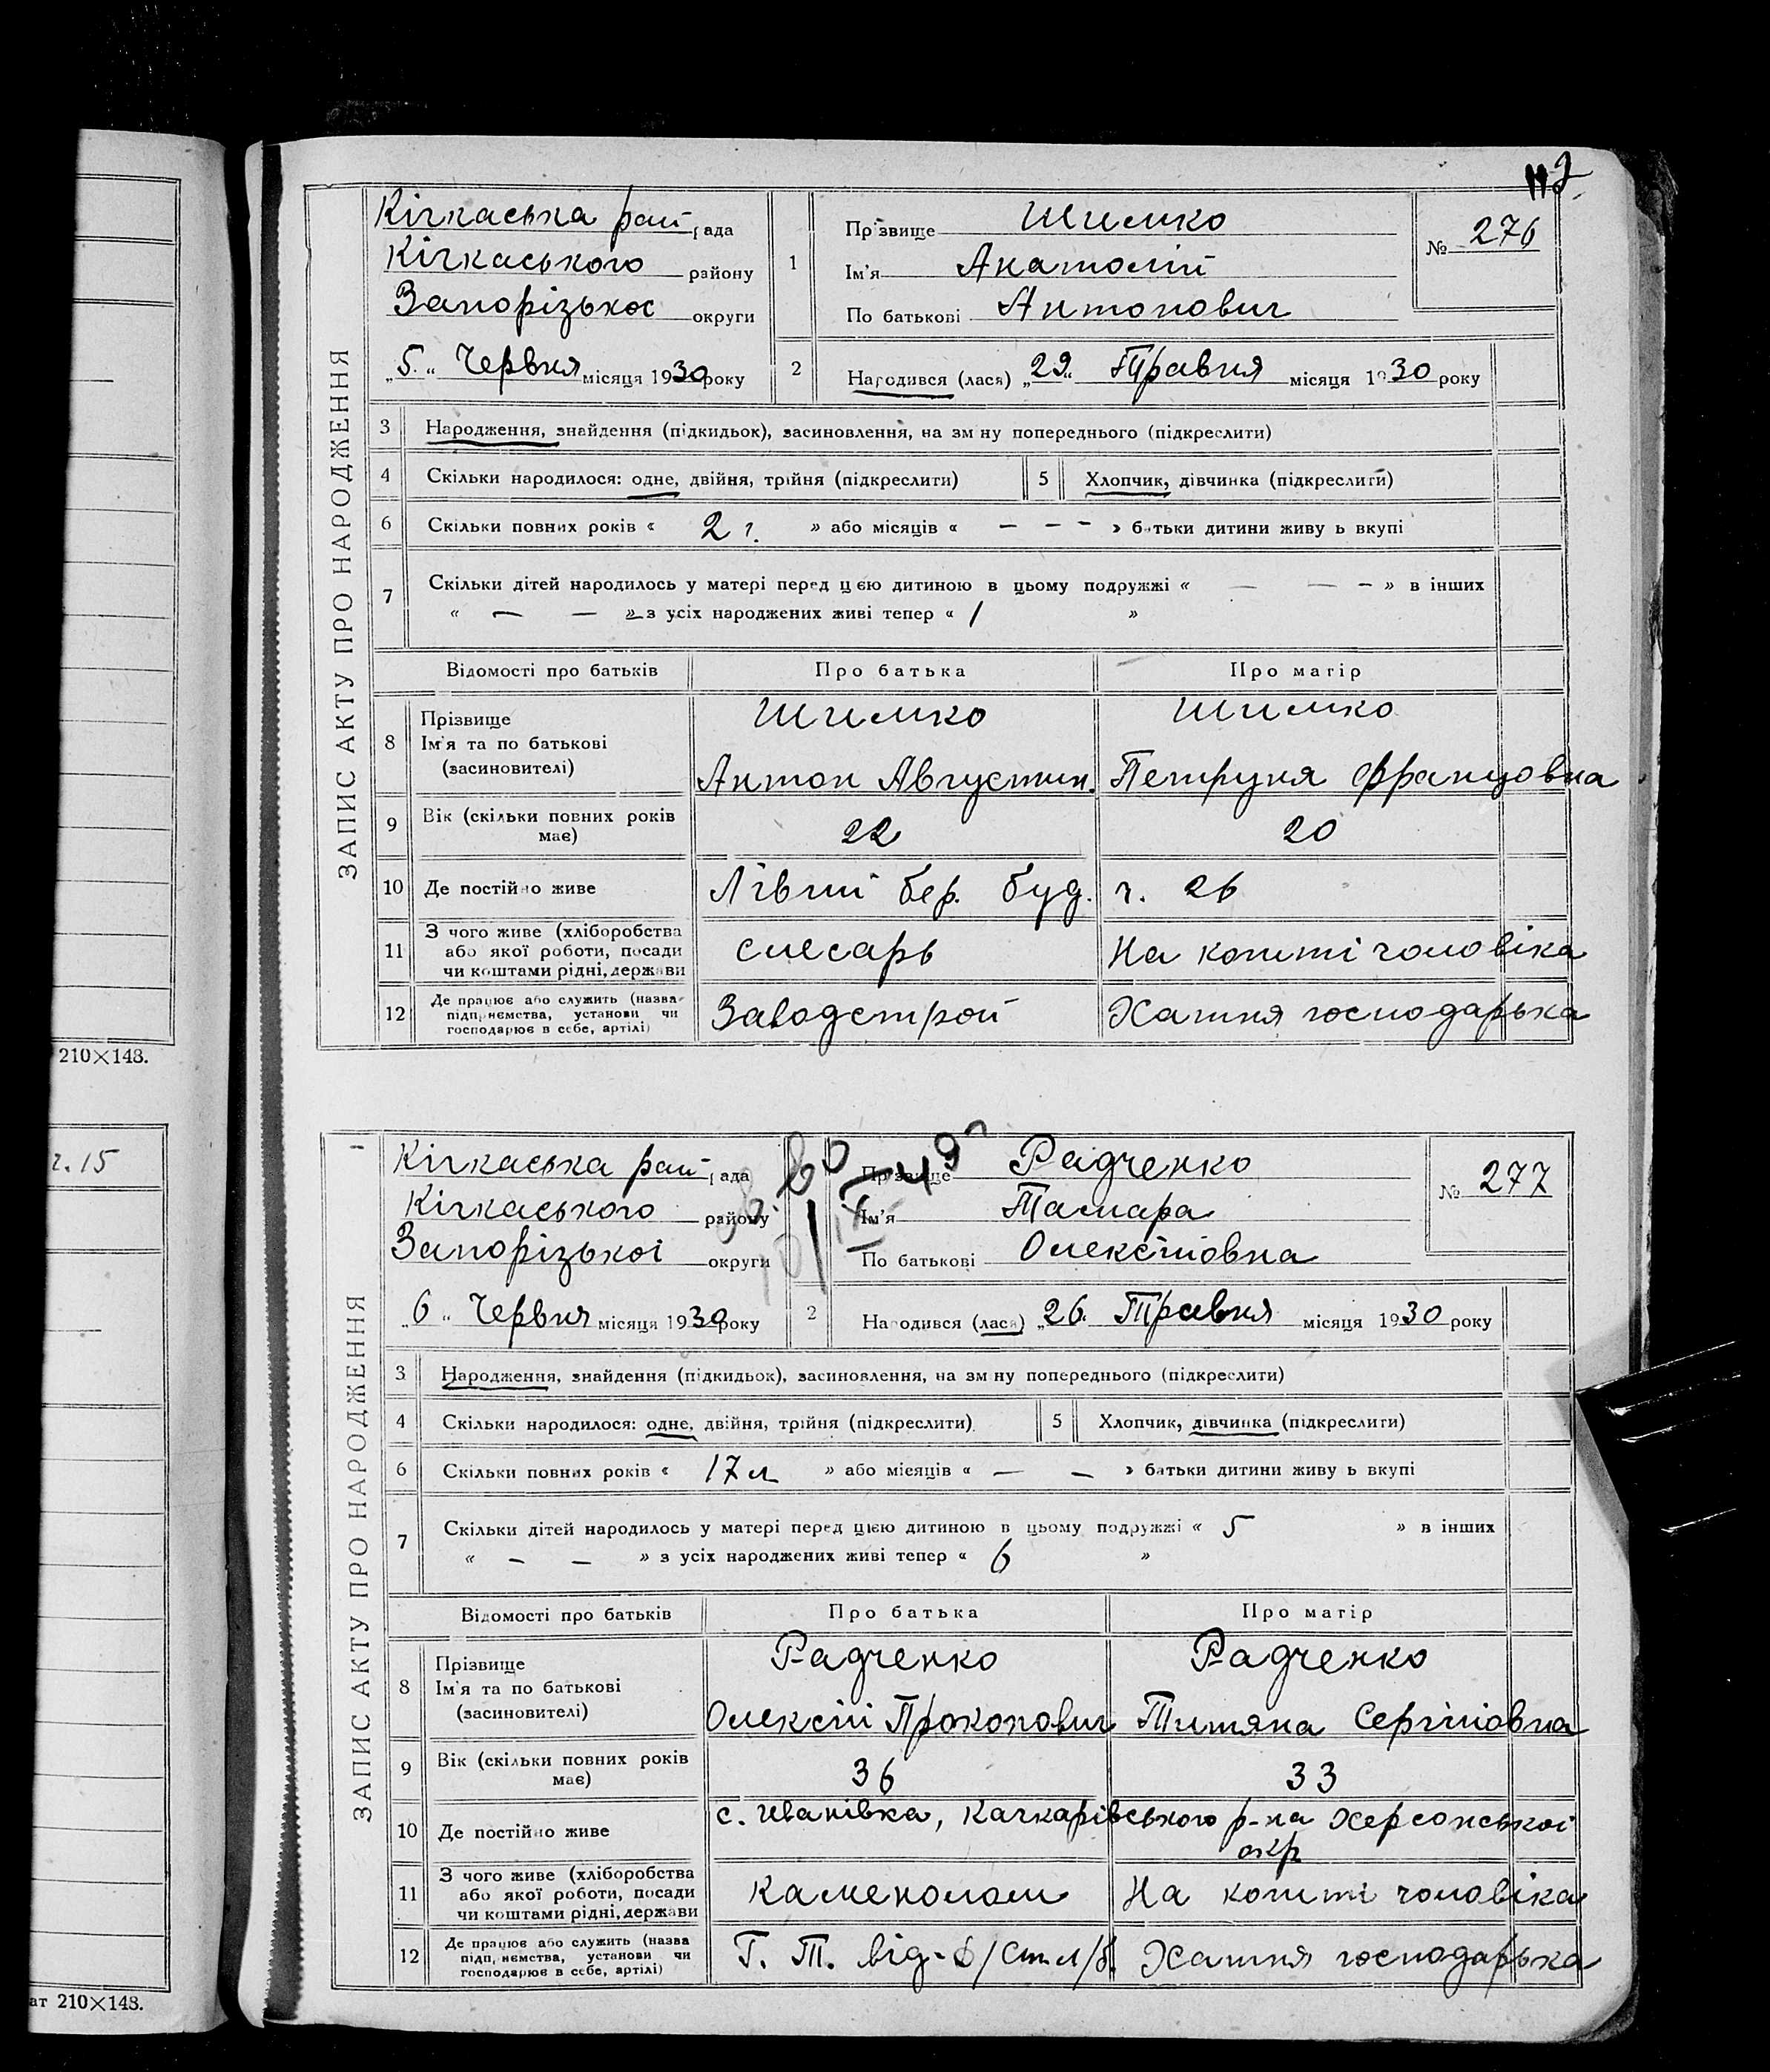 112
ЗАПИС АКТУ ПРО НАРОДЖЕННЯ
Кічкаська рай рада
Кічкаського району
Запорізької округи
„5.“ Червня місяця 1930 року
1
Прізвище Шимко
Ім'я Анатолій
По батькові Антонович
№ 276
2
Народився (лася) „29.“ Травня місяця 1930 року
3 Народження, знайдення (підкидьок), засиновлення, на зміну попереднього (підкреслити)
4 Скільки народилося: одне, двійня, трійня (підкреслити) 5 Хлопчик, дівчинка (підкреслити)
6 Скільки повних років « 2 г. » або місяців « — — — » батьки дитини живуть вкупі
7 Скільки дітей народилось у матері перед цією дитиною в цьому подружжі « — — — » в інших
« — — » з усіх народжених живі тепер « 1 »
Відомості про батьків Про батька Про матір
8 Прізвище Шимко Шимко
Ім'я та по батькові
(засиновителі) Антон Августин. Петруня Францовна
9 Вік (скільки повних років має) 22 20
10 Де постійно живе Лівий бер. буд. ч. 26
11 З чого живе (хліборобства
або якої роботи, посади слесарь На кошті чоловіка
чи коштами рідні, держави
12 Де працює або служить (назва
підприємства, установи чи Заводстрой Хатня господарька
господарює в себе, артілі)
210×148.
ч. 15
ЗАПИС АКТУ ПРО НАРОДЖЕННЯ
Кічкаська рай рада
Кічкаського району
Запорізької округи
„6“ Червня місяця 1930 року
Прізвище Радченко
Ім'я Тамара
По батькові Олексіївна
№ 277
2
Народився (лася) „26. Травня місяця 1930 року
3 Народження, знайдення (підкидьок), засиновлення, на зміну попереднього (підкреслити)
4 Скільки народилося: одне, двійня, трійня (підкреслити) 5 Хлопчик, дівчинка (підкреслити)
6 Скільки повних років « 17 л » або місяців « — — » батьки дитини живуть вкупі
7 Скільки дітей народилось у матері перед цією дитиною в цьому подружжі « 5 » в інших
« — — » з усіх народжених живі тепер « 6 »
Відомості про батьків Про батька Про матір
8 Прізвище Радченко Радченко
Ім'я та по батькові
(засиновителі) Олексій Прокопович Титяна Сергіїовна
9 Вік (скільки повних років має) 36 33
10 Де постійно живе с. Іванівка, Качкарівського р-на Херсонської
окр
11 З чого живе (хліборобства
або якої роботи, посади каменолом На кошті чоловіка
чи коштами рідні, держави
12 Де працює або служить (назва
підприємства, установи чи Г. Т. від-д Хатня господарька
господарює в себе, артілі)
ат 210×148.